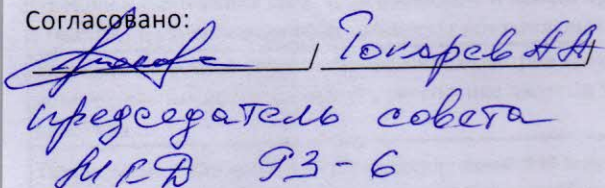 Согласовано:
/ Токарев АА/
председатель совета
МКД 93-6